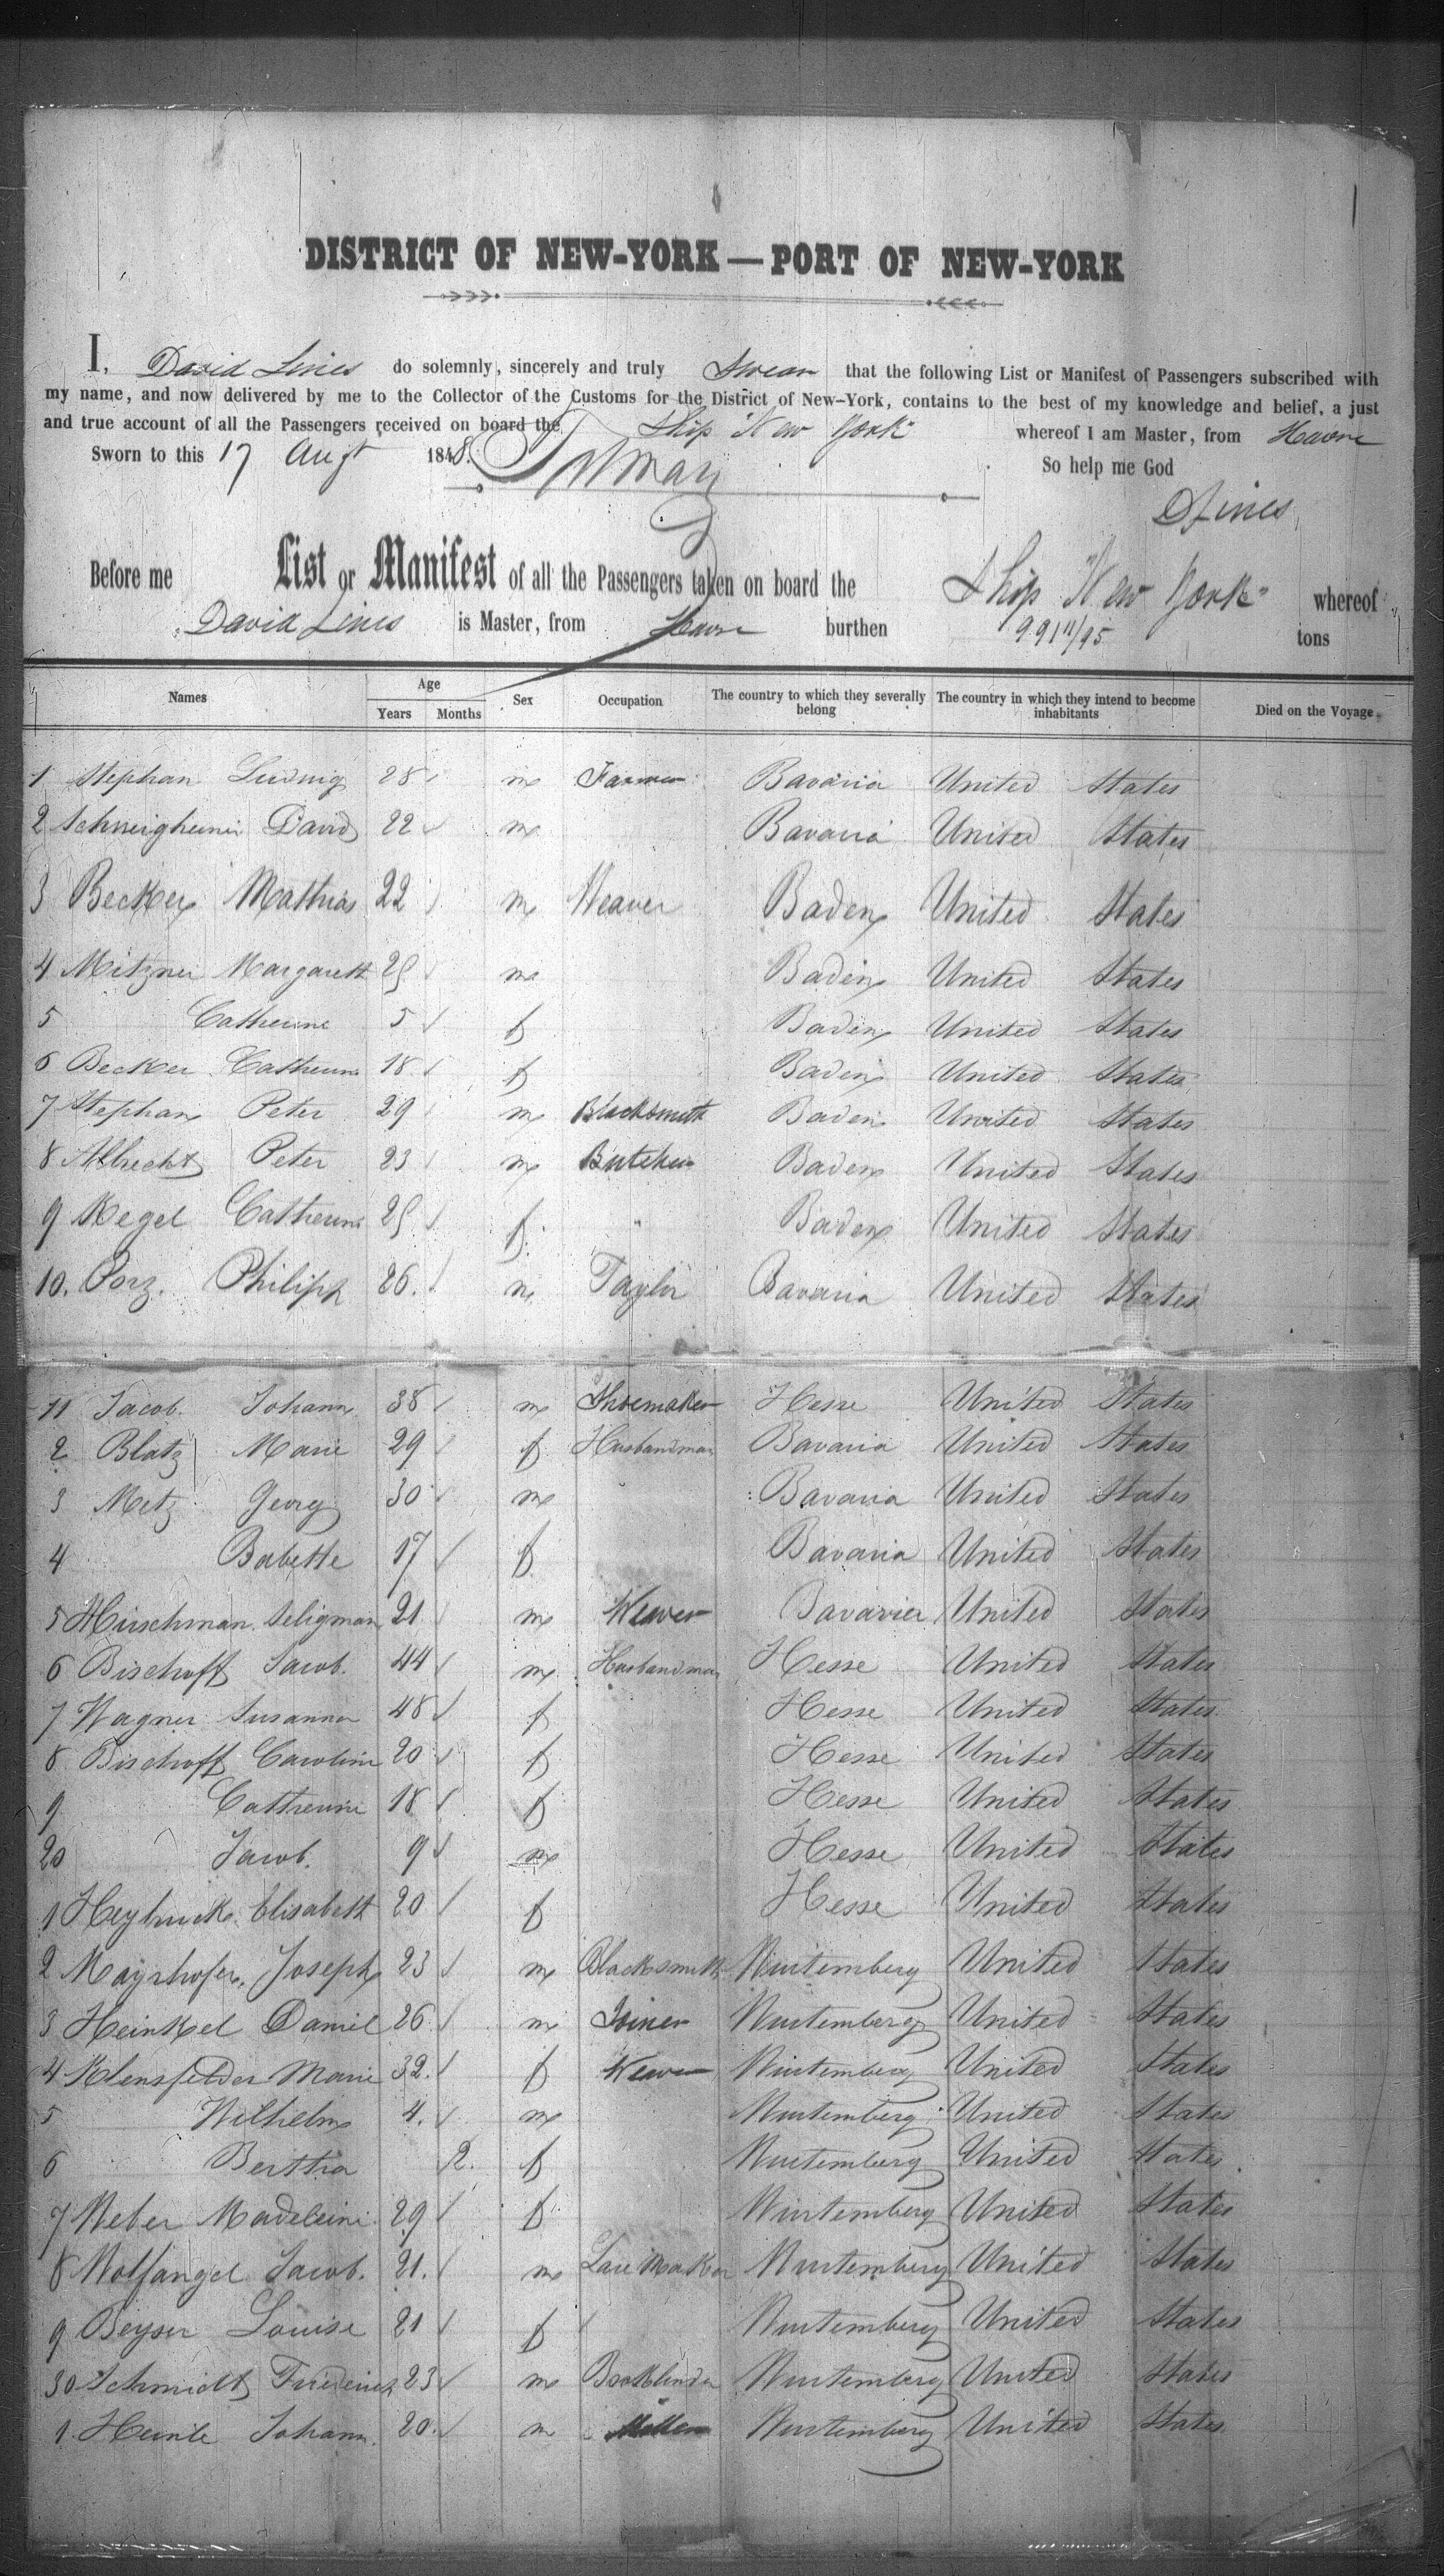 DISTRICT OF NEW-YORK — PORT OF NEW-YORK
I, David Lines do solemnly, sincerely and truly Swear that the following List or Manifest of Passengers subscribed with
my name, and now delivered by me to the Collector of the Customs for the District of New-York, contains to the best of my knowledge and belief, a just
and true account of all the Passengers received on board the Ship "New York" whereof I am Master, from Havre
Sworn to this 17 Augt 1848. So help me God
D Lines
Before me List or Manifest of all the Passengers taken on board the Ship "New York" whereof
David Lines is Master, from Havre burthen 991 11/95 tons
Names Age Years Months Sex Occupation The country to which they severally belong The country in which they intend to become inhabitants Died on the Voyage
1 Stephan Ludwig 28 m Farmer Bavaria United States
2 David 22 m Bavaria United States
3 Becker Mathias 22 m Weaver Baden United States
4 Mitzner Margareth 25 m Baden United States
5 Catherine 5 f Baden United States
6 Becker Catherine 18 f Baden United States
7 Stephan Peter 29 m Blacksmith Baden United States
8 Albrecht Peter 23 m Butcher Baden United States
9 Kegel Catherine 25 f " Baden United States
10. Porz. Philiph 26. m Taylor Bavaria United States
11 Jacob. Johann 38 m Shoemaker Hesse United States
2 Blatz Marie 29 f Husbandman Bavaria United States
3 Metz Georg 30 m Bavaria United States
4 Babette 17 f Bavaria United States
5 Hirschman Seligman 21 m Weaver Bavaria United States
6 Bischoff Jacob. 44 m Husbandman Hesse United States
7 Wagner Susanna 48 f Hesse United States
8 Bischoff Caroline 20 f Hesse United States
9 Catherine 18 f Hesse United States
20 Jacob. 9 m Hesse United States
1 Heybruck Elisabeth 20 f Hesse United States
2 Mayrhofer, Joseph 23 m Blacksmith Wurtemberg United States
3 Heinkel Daniel 26 m Joiner Wurtemberg United States
4 Klensfelder Marie 32. f Weaver Wurtemberg United States
5 Wilhelm 4. m Wurtemberg United States
6 Bertha 2. f Wurtemberg United States
7 Weber Madeleine 29 f Wurtemberg United States
8 Wolfangel Jacob. 21. m Lace Maker Wurtemberg United States
9 Beyser Louise 21 f Wurtemberg United States
30 Schmidt Friederich 23 m Bookbinder Wurtemberg United States
1 Heinle Johann. 20. m Miller Wurtemberg United States